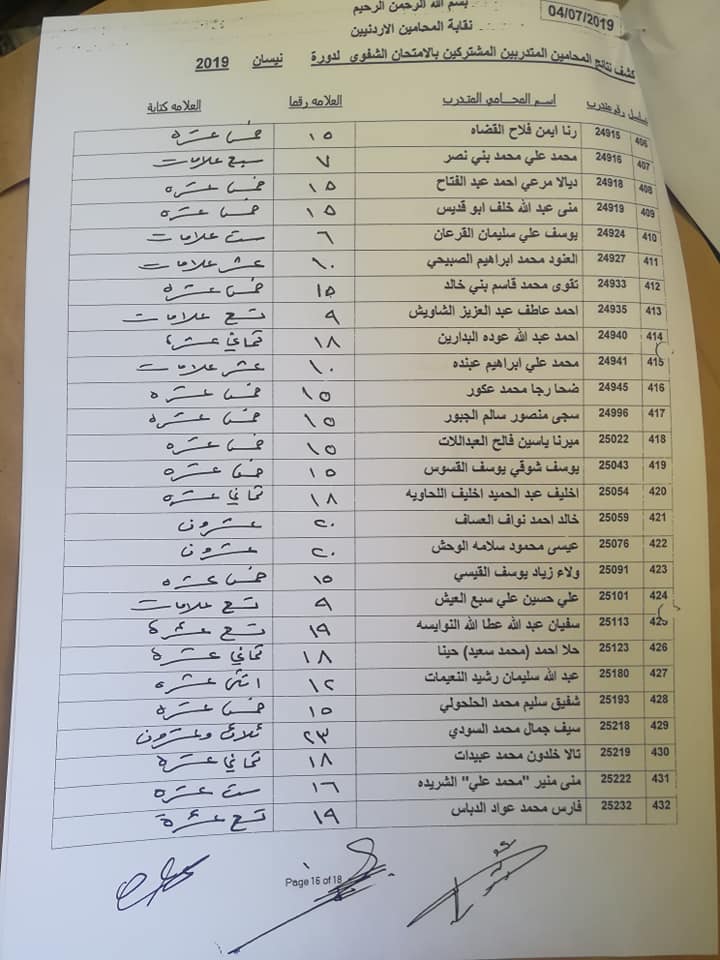 04/07/2019
بسم الله الرحمن الرحيم
نقابة المحامين الاردنيين
كشف نتائج المحامين المتدربين المشتركين بالامتحان الشفوي لدورة نيسان 2019
تسلسل رقم متدرب اسم المحامي المتدرب العلامه رقما العلامه كتابة
406 24915 رنا ايمن فلاح القضاه ١٥ خمس عشره
407 24916 محمد علي محمد بني نصر ٧ سبع علامات
408 24918 ديالا مرعي احمد عبد الفتاح ١٥ خمس عشره
409 24919 منى عبد الله خلف ابو قديس ١٥ خمس عشره
410 24924 يوسف علي سليمان القرعان ٦ ست علامات
411 24927 العنود محمد ابراهيم الصبيحي ١٠ عشر علامات
412 24933 تقوى محمد قاسم بني خالد ١٥ خمس عشره
413 24935 احمد عاطف عبد العزيز الشاويش ٩ تسع علامات
414 24940 احمد عبد الله عوده البدارين ١٨ ثماني عشرة
415 24941 محمد علي ابراهيم عبنده ١٠ عشر علامات
416 24945 ضحا رجا محمد عكور ١٥ خمس عشره
417 24996 سجى منصور سالم الجبور ١٥ خمس عشره
418 25022 ميرنا ياسين فالح العبداللات ١٥ خمس عشره
419 25043 يوسف شوقي يوسف القسوس ١٥ خمس عشره
420 25054 اخليف عبد الحميد اخليف اللحاويه ١٨ ثماني عشره
421 25059 خالد احمد نواف العساف ٢٠ عشرون
422 25076 عيسى محمود سلامه الوحش ٢٠ عشرون
423 25091 ولاء زياد يوسف القيسي ١٥ خمس عشره
424 25101 علي حسين علي سبع العيش ٩ تسع علامات
425 25113 سفيان عبد الله عطا الله النوايسه ١٩ تسع عشرة
426 25123 حلا احمد (محمد سعيد) حينا ١٨ ثماني عشرة
427 25180 عبد الله سليمان رشيد النعيمات ١٢ اثنى عشره
428 25193 شفيق سليم محمد الحلحولي ١٥ خمس عشرة
429 25218 سيف جمال محمد السودي ٢٣ ثلاث وعشرون
430 25219 تالا خلدون محمد عبيدات ١٨ ثماني عشرة
431 25222 منى منير "محمد علي" الشريده ١٦ ست عشره
432 25232 فارس محمد عواد الدباس ١٩ تسع عشرة
Page 16 of 18